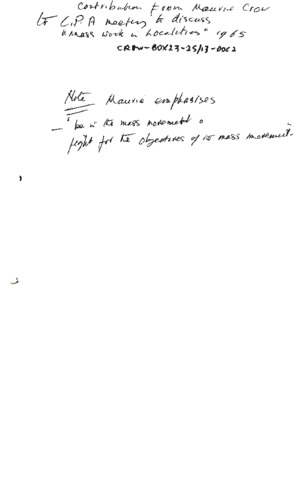 Contribution From Maurie Crow
to C.P.A meeting to discuss
"Mass work in Localities" 1965
CROW-BOX23-25/13-0062
Note Maurie emphasises
— "be in the mass movement &
fight for the objectives of the mass movement."